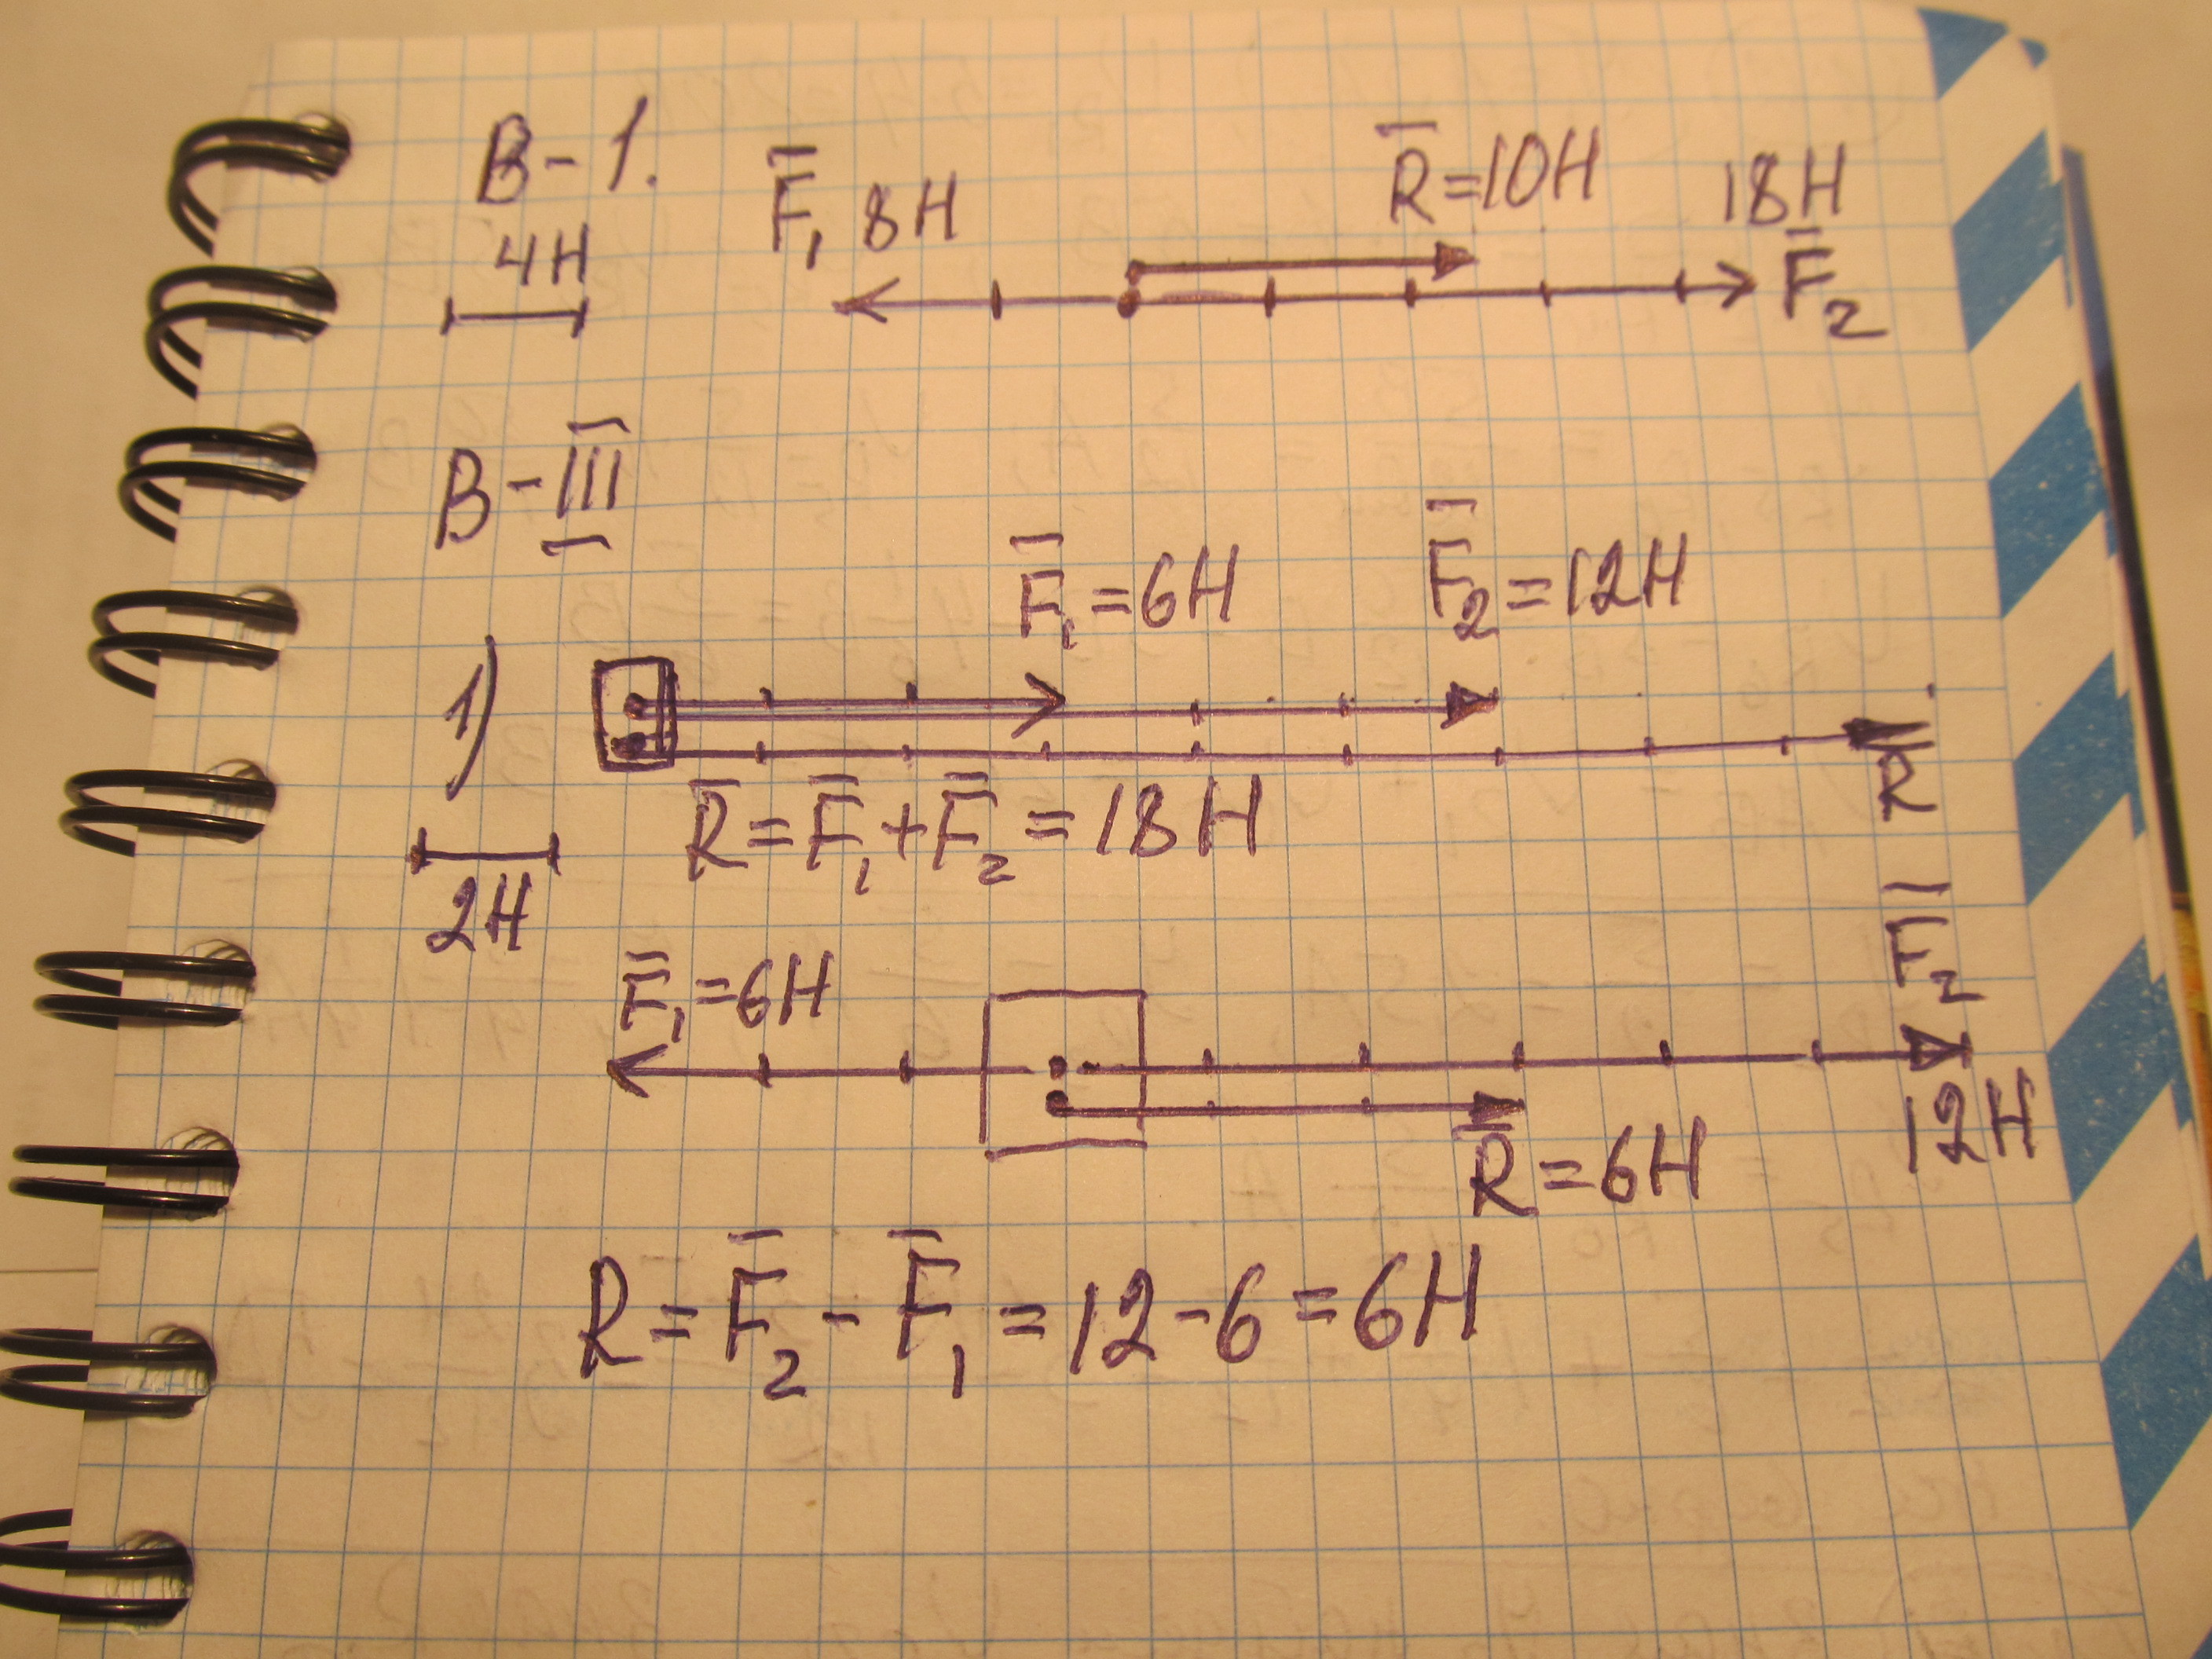 В-1.
4Н
F̅₁ 8Н
R̅=10Н
18Н
F̅₂
В-III
F̅₁=6Н
F̅₂=12Н
1)
R̅
R̅=F̅₁+F̅₂=18Н
2Н
F̅₁=6Н
F̅₂
12Н
R̅=6Н
R=F̅₂-F̅₁=12-6=6Н